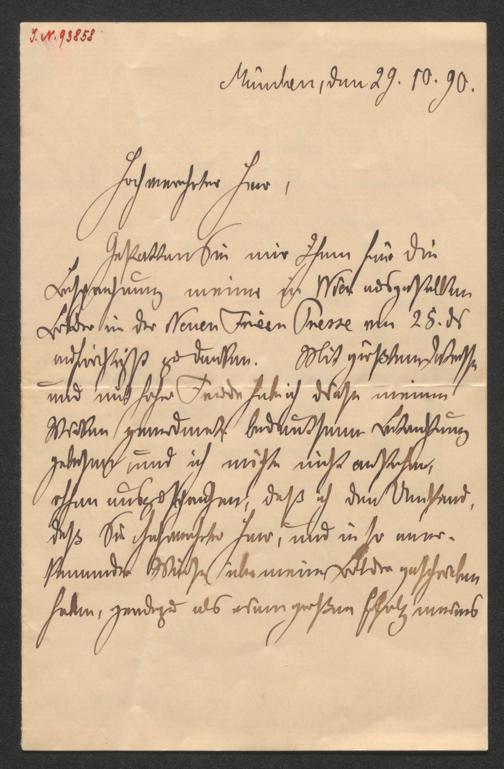 J.N. 93858
München, den 29. 10. 90.
Hochverehrter Herr,
Gestatten Sie mir Ihnen für die
Besprechung meiner in Wien ausgestellten
Bilder in der Neuen Freien Presse vom 28. ds
aufrichtigst zu danken. Mit größtem Interesse
und mit hoher Freude habe ich diese meinen
Werken gewidmete bedeutsame Betrachtung
gelesen und ich möchte nicht anstehen,
Ihnen auszusprechen, daß ich den Umstand,
daß Sie hochverehrter Herr, und in so aner-
kennender Weise über meine Bilder geschrieben
haben, geradezu als einen großen Erfolg meines